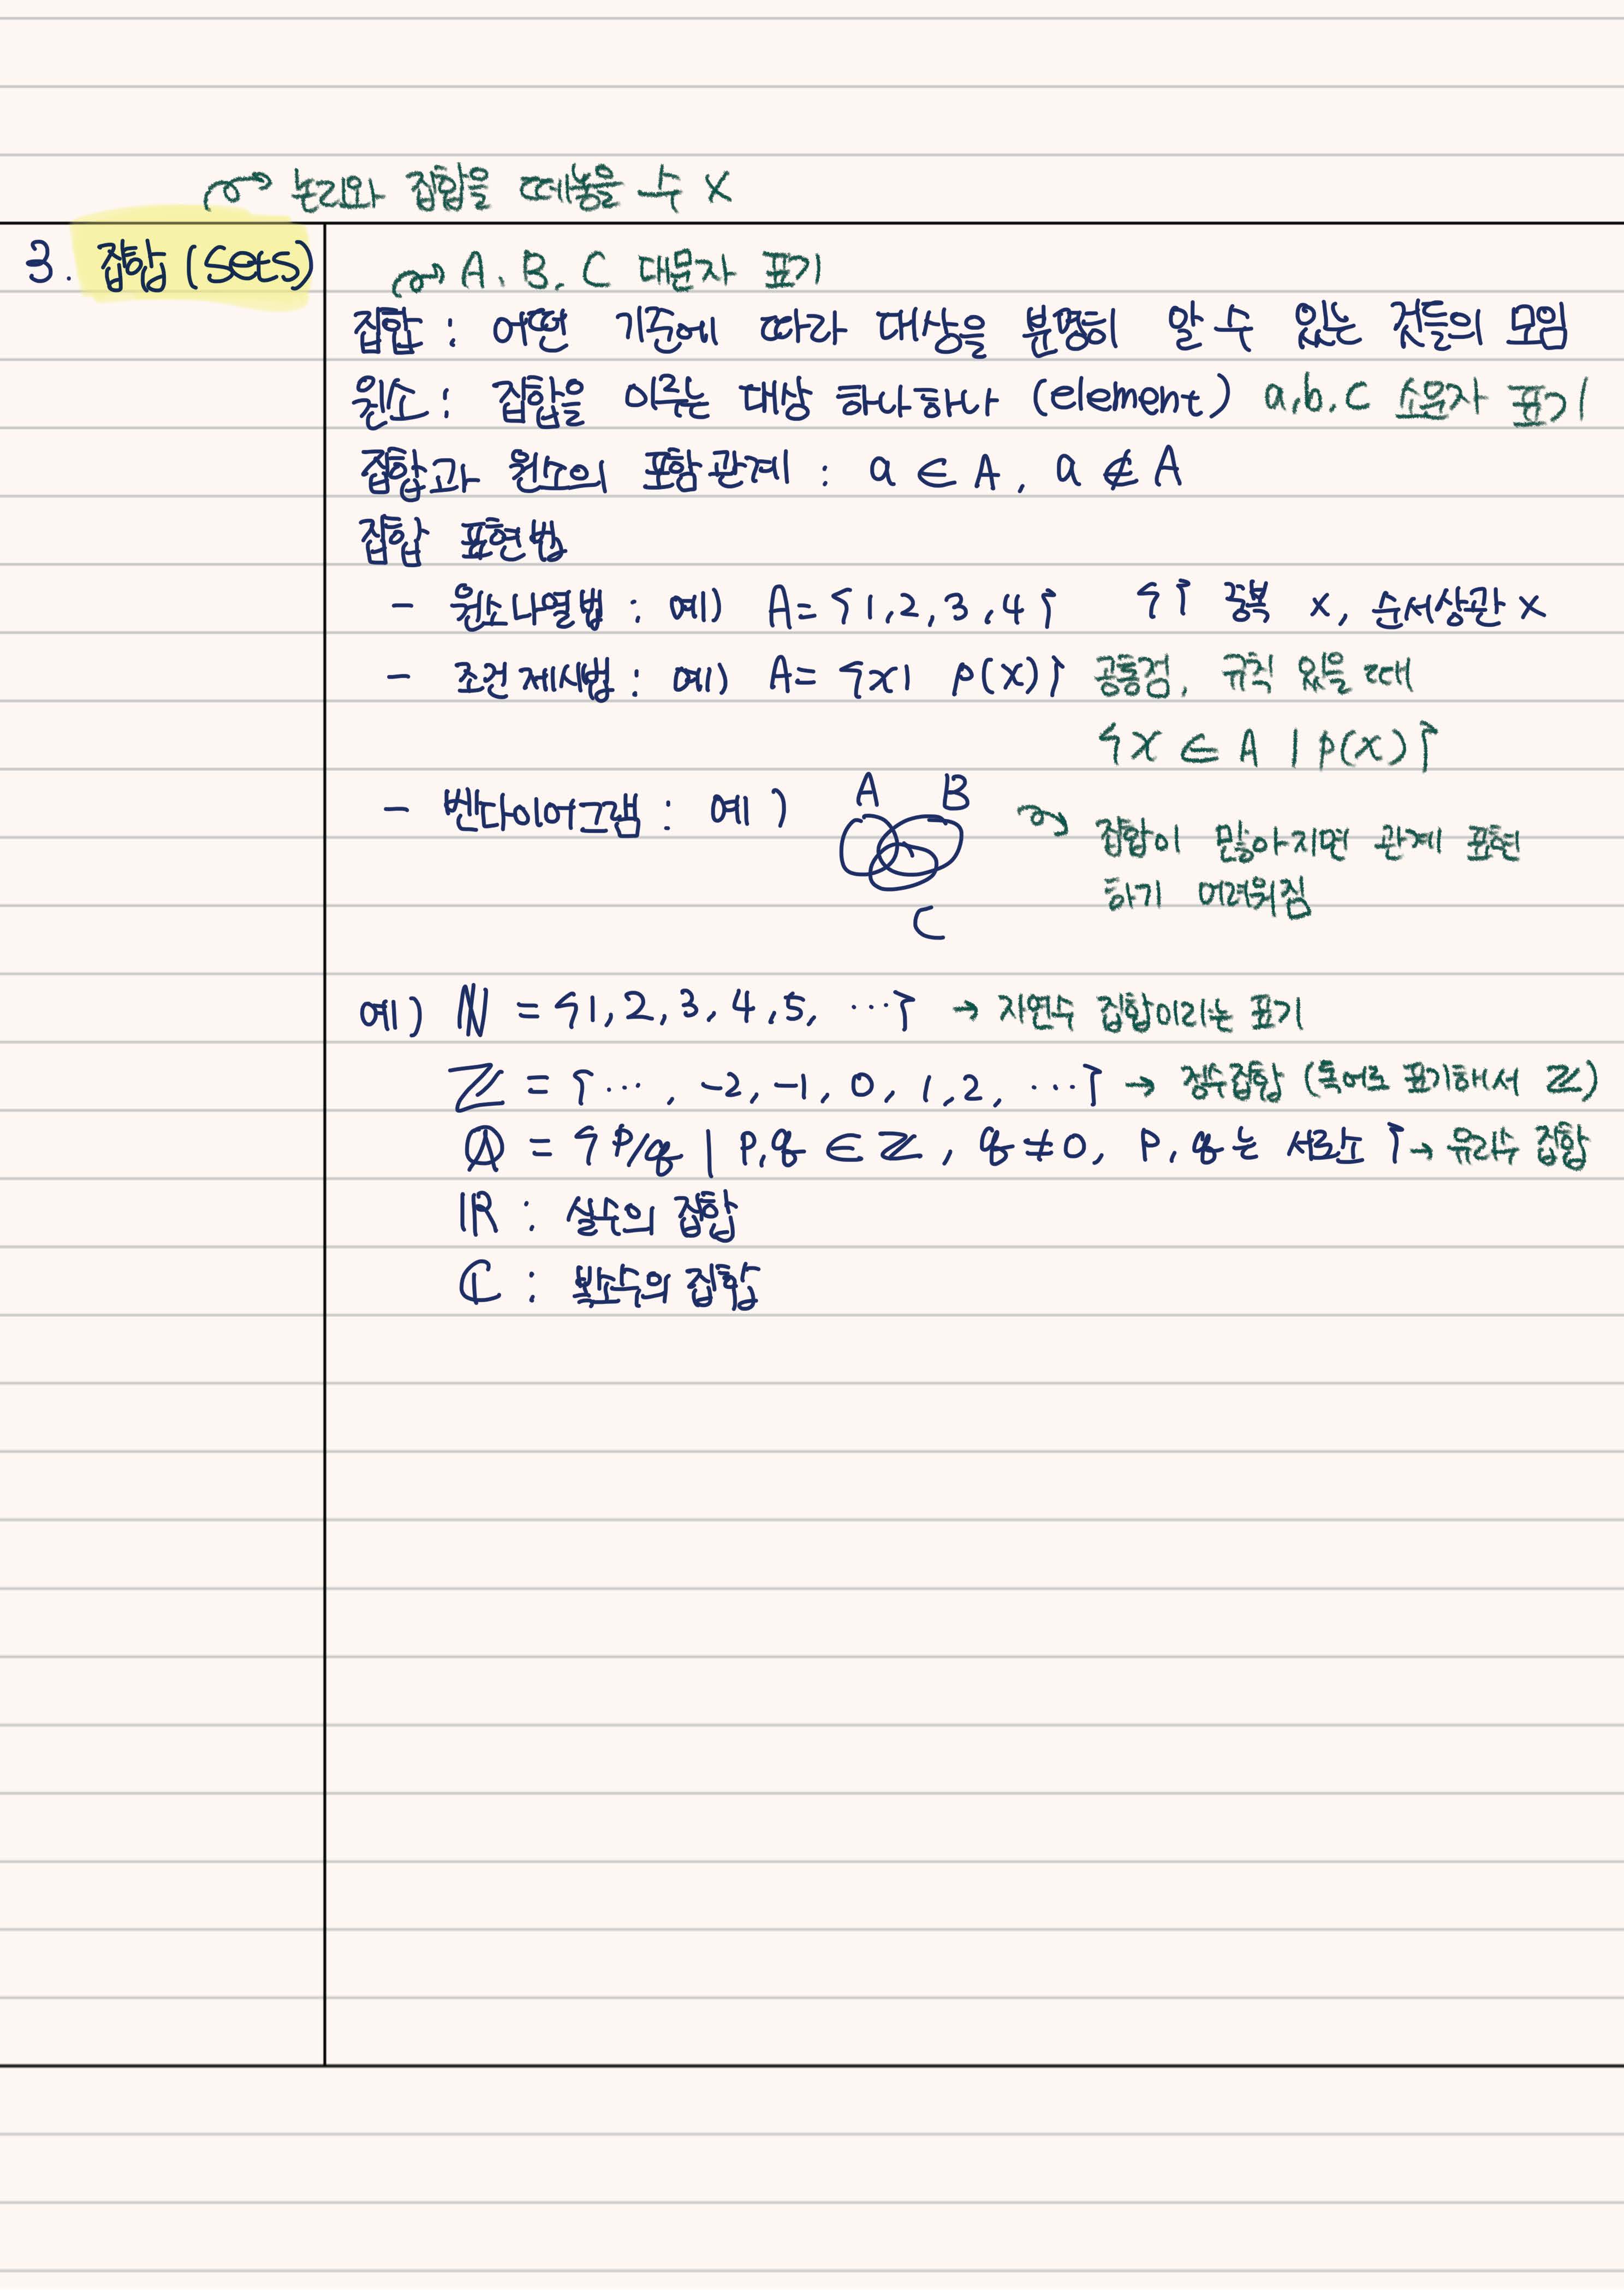 논리와 집합을 떼놓을 수 x
3. 집합 (Sets)
A. B. C 대문자 표기
집합 : 어떤 기준에 따라 대상을 분명히 알 수 있는 것들의 모임
원소 : 집합을 이루는 대상 하나하나 (element) a,b.c 소문자 표기
집합과 원소의 포함관계 : a ∈ A, a ∉ A
집합 표현법
- 원소나열법 : 예) A = {1,2,3,4} { } 중복 x, 순서상관 x
- 조건제시법 : 예) A = {x| p(x)} 공통점, 규칙 있을 때
{x ∈ A | p(x)}
- 벤다이어그램 : 예 )
A B
C
집합이 많아지면 관계 표현
하기 어려워짐
예) ℕ = {1, 2, 3, 4, 5, ···} → 자연수 집합이라는 표기
ℤ = {··· , -2, -1, 0, 1, 2, ···} → 정수집합 (독어로 표기해서 ℤ)
ℚ = {p/q | p,q ∈ ℤ, q ≠ 0, p, q는 서로소} → 유리수 집합
ℝ : 실수의 집합
ℂ : 복소수의 집합